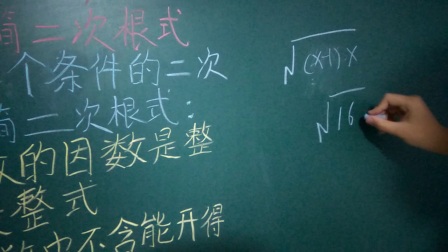 简二次根式
个条件的二次
简二次根式：
数的因数是整
整式
不含能开得
√(x-1)·x
√16